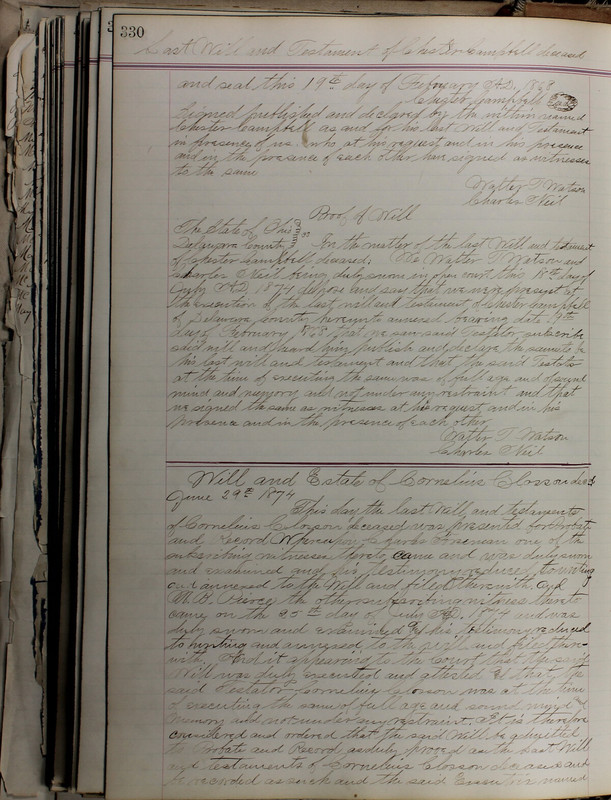 330
Last Will and Testament of Chester Campbell deceased
and seal this 19th day of February A.D. 1868
Chester Campbell Seal
Signed published and declared by the within named
Chester Campbell as and for his last Will and Testament
in presence of us who at his request and in his presence
and in the presence of each other have signed as witnesses
to the same
Walter T Watson
Charles Neil
Proof of Will
The State of Ohio
Delaware County SS In the matter of the last Will and testament
of Chester Campbell deceased. We Walter T Watson and
Charles Neil being duly sworn in open court this 18th day of
July A.D. 1874 depose and say that we were present at
the execution of the last will and testament of Chester Campbell
of Delaware county hereunto annexed bearing date 19th
day of February 1868 that we saw said Testator subscribe
said will and heard him publish and declare the same to be
his last will and testament and that the said Testator
at the time of executing the same was of full age and of sound
mind and memory and not under any restraint and that
we signed the same as witnesses at his request and in his
presence and in the presence of each other
Walter T Watson
Charles Neil
Will and Estate of Cornelius Closson decd
June 29th 1874
This day the last Will and testament
of Cornelius Closson deceased was presented for Probate
and record Whereupon Freeman one of the
subscribing witnesses thereto came and was duly sworn
and examined and his testimony reduced to writing
and annexed to the Will and filed therewith and
M. B. the other subscribing witness thereto
came on the 25th day of July A.D. 1874 and was
duly sworn and examined and his testimony reduced
to writing and annexed to the will and filed there
with. And it appearing to the court that the said
Will was duly executed and attested & that the
said Testator Cornelius Closson was at the time
of executing the same of full age and sound mind &
memory and not under any restraint. It is therefore
considered and ordered that the said Will be admitted
to Probate and Record as duly proved as the last Will
and testament of Cornelius Closson deceased and
be recorded as such and the said Executrix named